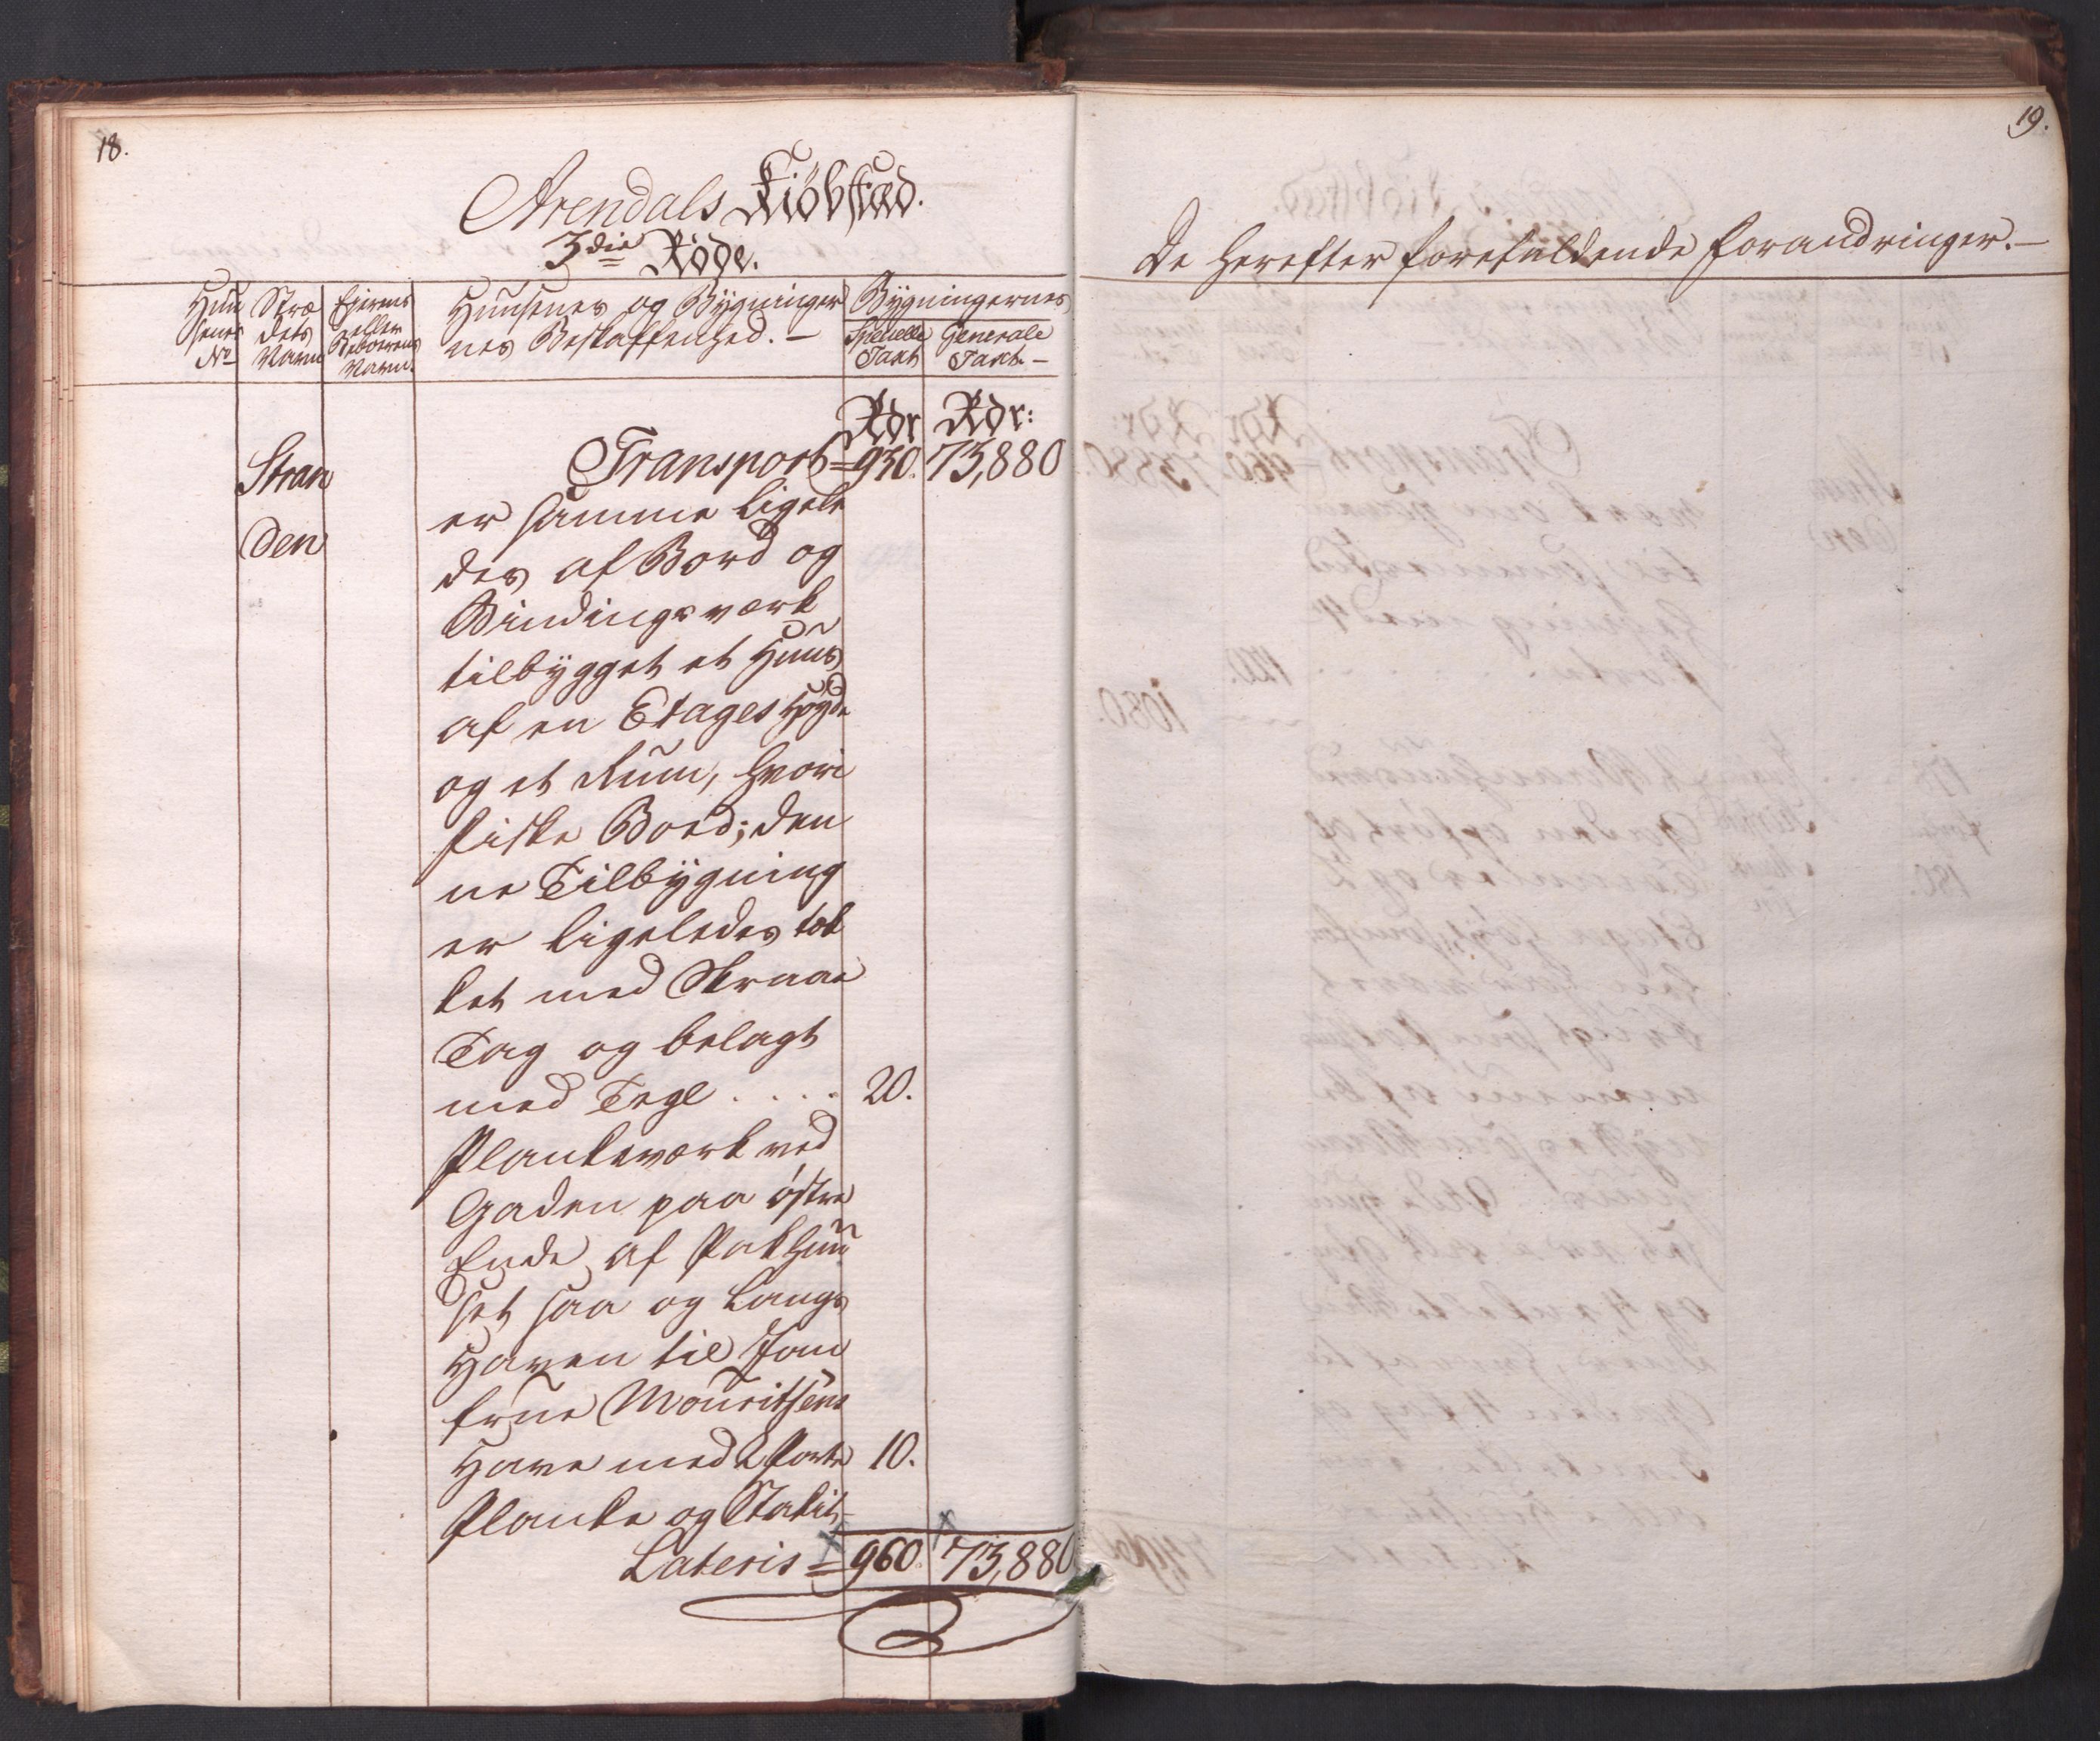 18.
Arendals Kiöbstad.
3die Rode.
Huu
senes
No
Stræ
dets
Navn
Ejerens
eller
Beboerens
Navn.
Huusenes og Bygninger
nes Beskaffenhed. —
Bygningernes
Specielle
Taxt
Generale
Taxt. —
Rdr Rdr:
Stran
den
Transport = 930. 73,880
er samme ligele
des af Bord og
Bindingsværk
tilbygget et Huus
af en Etages Høyde
og et Rum, hvori
fiske Boed; den
ne Tilbygning
er ligeledes tæk
ket med Skraae
Tag og belagt
med Tegl . . . . 20.
Plankeværk ved
Gaden paa østre
Ende af Pakhuu
set saa og langs
Haven til Jom
frue Mouritsens
Have med 2 Porte 10.
Planke og Stakit
Lateris = 960. 73,880
19.
De herefter forefaldende forandringer. —